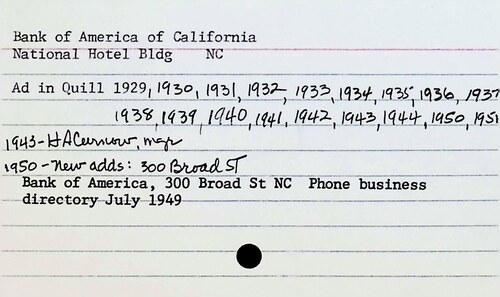 Bank of America of California
National Hotel Bldg NC
Ad in Quill 1929, 1930, 1931, 1932, 1933, 1934, 1935, 1936, 1937
1938, 1939, 1940, 1941, 1942, 1943, 1944, 1950, 1951
1943-H A Curnow, mgr
1950-New adds: 300 Broad ST
Bank of America, 300 Broad St NC Phone business
directory July 1949